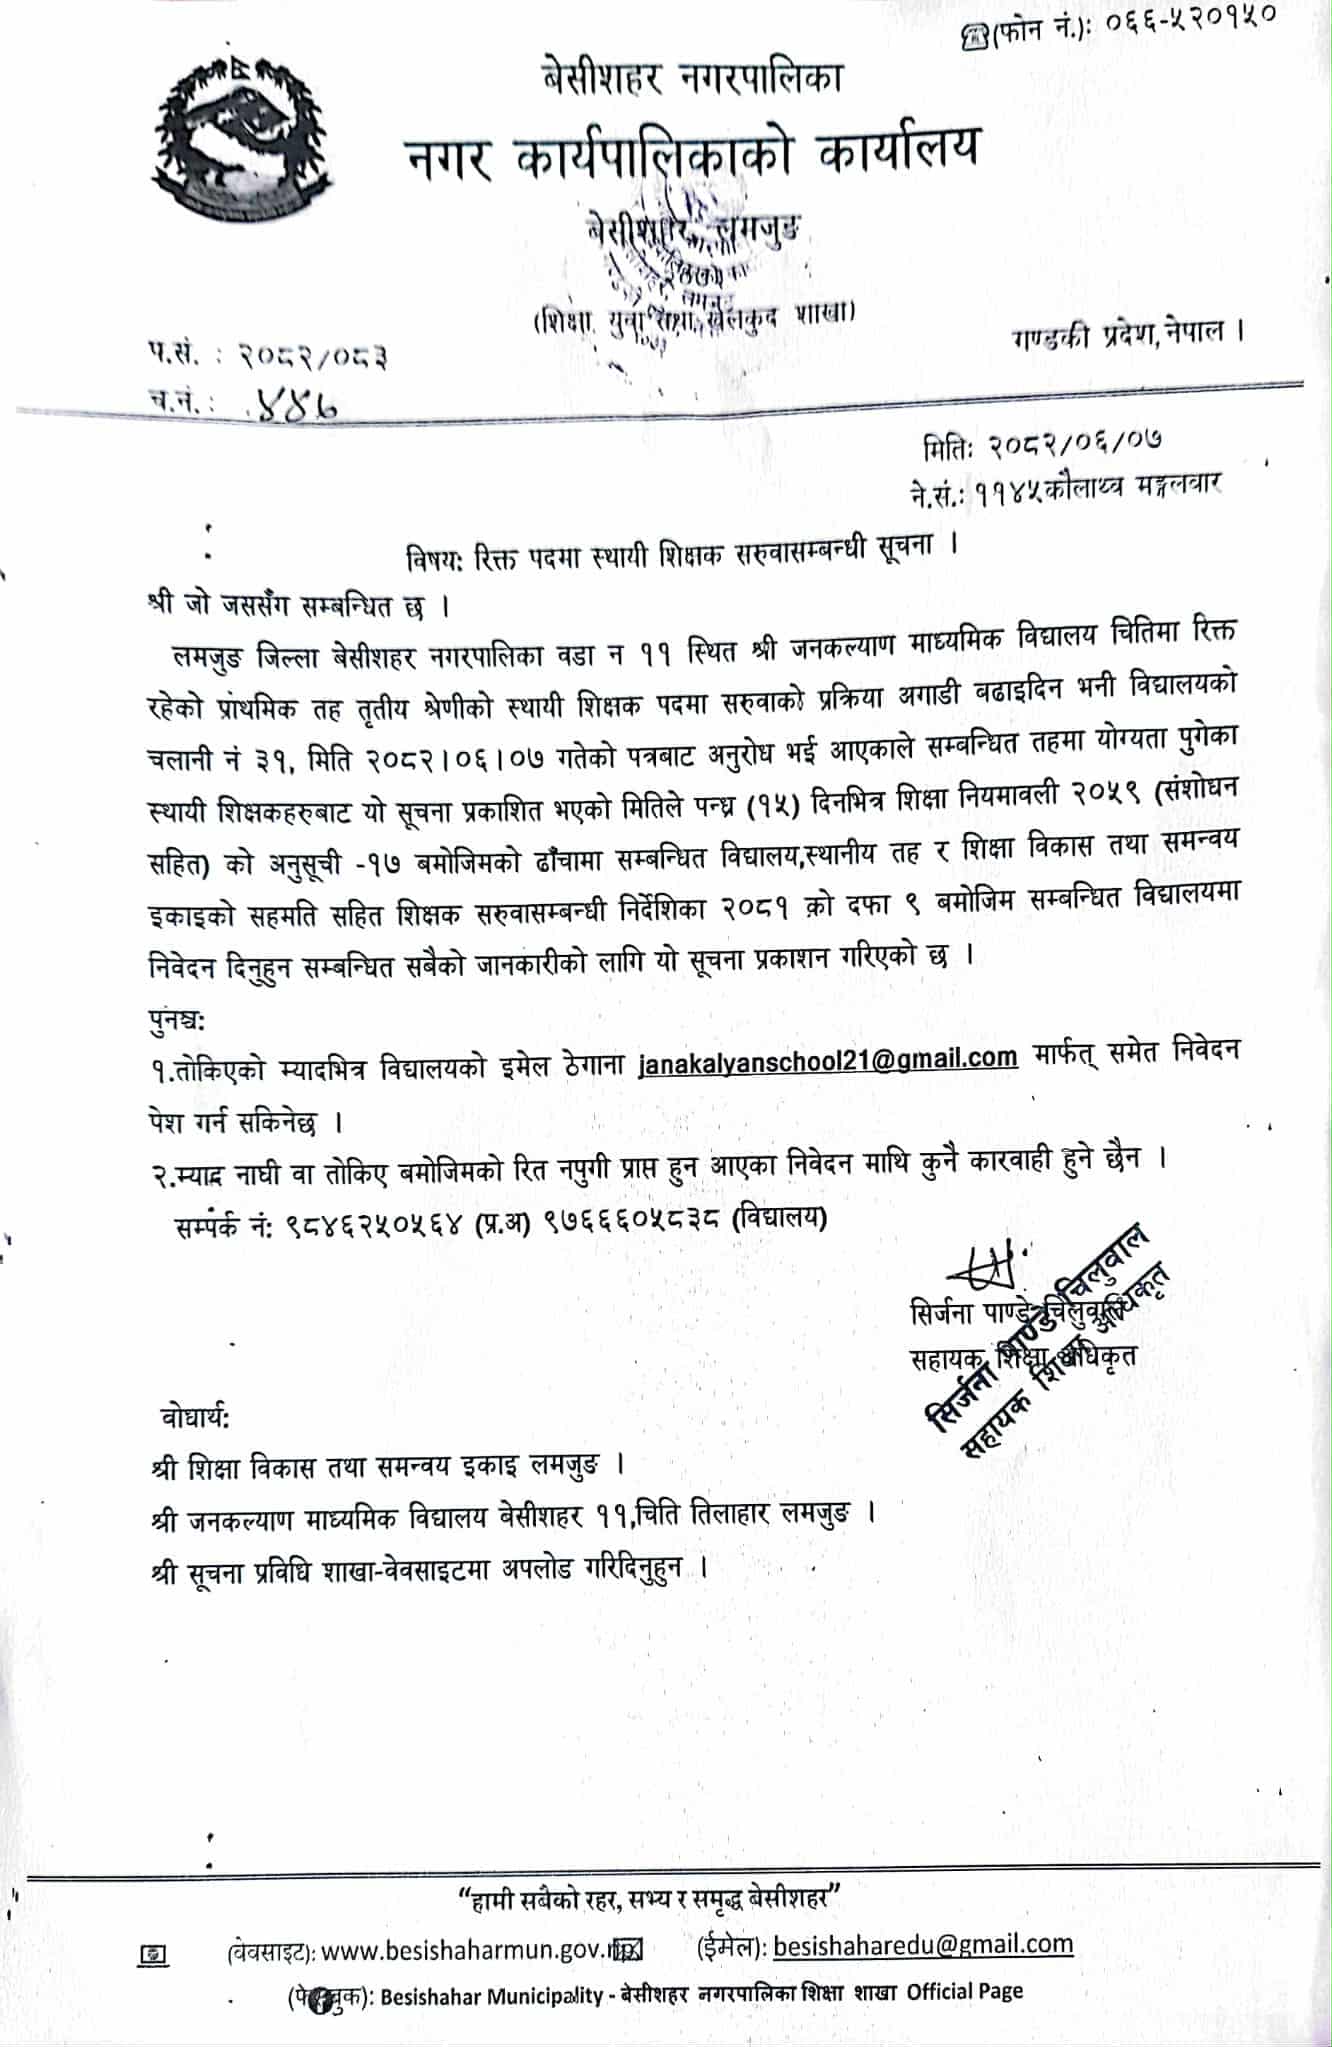 (फोन नं.): ०६६-५२०१५०
बेसीशहर नगरपालिका
नगर कार्यपालिकाको कार्यालय
बेसीशहर लमजुङ
(शिक्षा, युवा तथा खेलकुद शाखा)
गण्डकी प्रदेश,नेपाल ।
प.सं. : २०८२/०८३
च.नं.: ४४७
मितिः २०८२/०६/०७
ने.सं.: ११४५कौलाथ्व मङ्गलवार
विषय: रिक्त पदमा स्थायी शिक्षक सरुवासम्बन्धी सूचना ।
श्री जो जससँग सम्बन्धित छ ।
लमजुङ जिल्ला बेसीशहर नगरपालिका वडा न ११ स्थित श्री जनकल्याण माध्यमिक विद्यालय चितिमा रिक्त
रहेको प्राथमिक तह तृतीय श्रेणीको स्थायी शिक्षक पदमा सरुवाको प्रक्रिया अगाडी बढाइदिन भनी विद्यालयको
चलानी नं ३१, मिति २०८२।०६।०७ गतेको पत्रबाट अनुरोध भई आएकाले सम्बन्धित तहमा योग्यता पुगेका
स्थायी शिक्षकहरुबाट यो सूचना प्रकाशित भएको मितिले पन्ध्र (१५) दिनभित्र शिक्षा नियमावली २०५९ (संशोधन
सहित) को अनुसूची -१७ बमोजिमको ढाँचामा सम्बन्धित विद्यालय,स्थानीय तह र शिक्षा विकास तथा समन्वय
इकाइको सहमति सहित शिक्षक सरुवासम्बन्धी निर्देशिका २०८१ को दफा ९ बमोजिम सम्बन्धित विद्यालयमा
निवेदन दिनुहुन सम्बन्धित सबैको जानकारीको लागि यो सूचना प्रकाशन गरिएको छ ।
पुनश्च:
१.तोकिएको म्यादभित्र विद्यालयको इमेल ठेगाना janakalyanschool21@gmail.com मार्फत् समेत निवेदन
पेश गर्न सकिनेछ ।
२.म्याद नाघी वा तोकिए बमोजिमको रित नपुगी प्राप्त हुन आएका निवेदन माथि कुनै कारवाही हुने छैन ।
सम्पर्क नं: ९८४६२५०५६४ (प्र.अ) ९७६६६०५८३८ (विद्यालय)
सिर्जना पाण्डे चिलुवाल
सहायक शिक्षा अधिकृत
सिर्जना पाण्डे चिलुवाल
सहायक शिक्षा अधिकृत
वोधार्थ:
श्री शिक्षा विकास तथा समन्वय इकाइ लमजुङ ।
श्री जनकल्याण माध्यमिक विद्यालय बेसीशहर ११,चिति तिलाहार लमजुङ ।
श्री सूचना प्रविधि शाखा-वेवसाइटमा अपलोड गरिदिनुहुन ।
“हामी सबैको रहर, सभ्य र समृद्ध बेसीशहर”
(वेवसाइट): www.besishaharmun.gov.np
(ईमेल): besishaharedu@gmail.com
(फेसबुक): Besishahar Municipality - बेसीशहर नगरपालिका शिक्षा शाखा Official Page